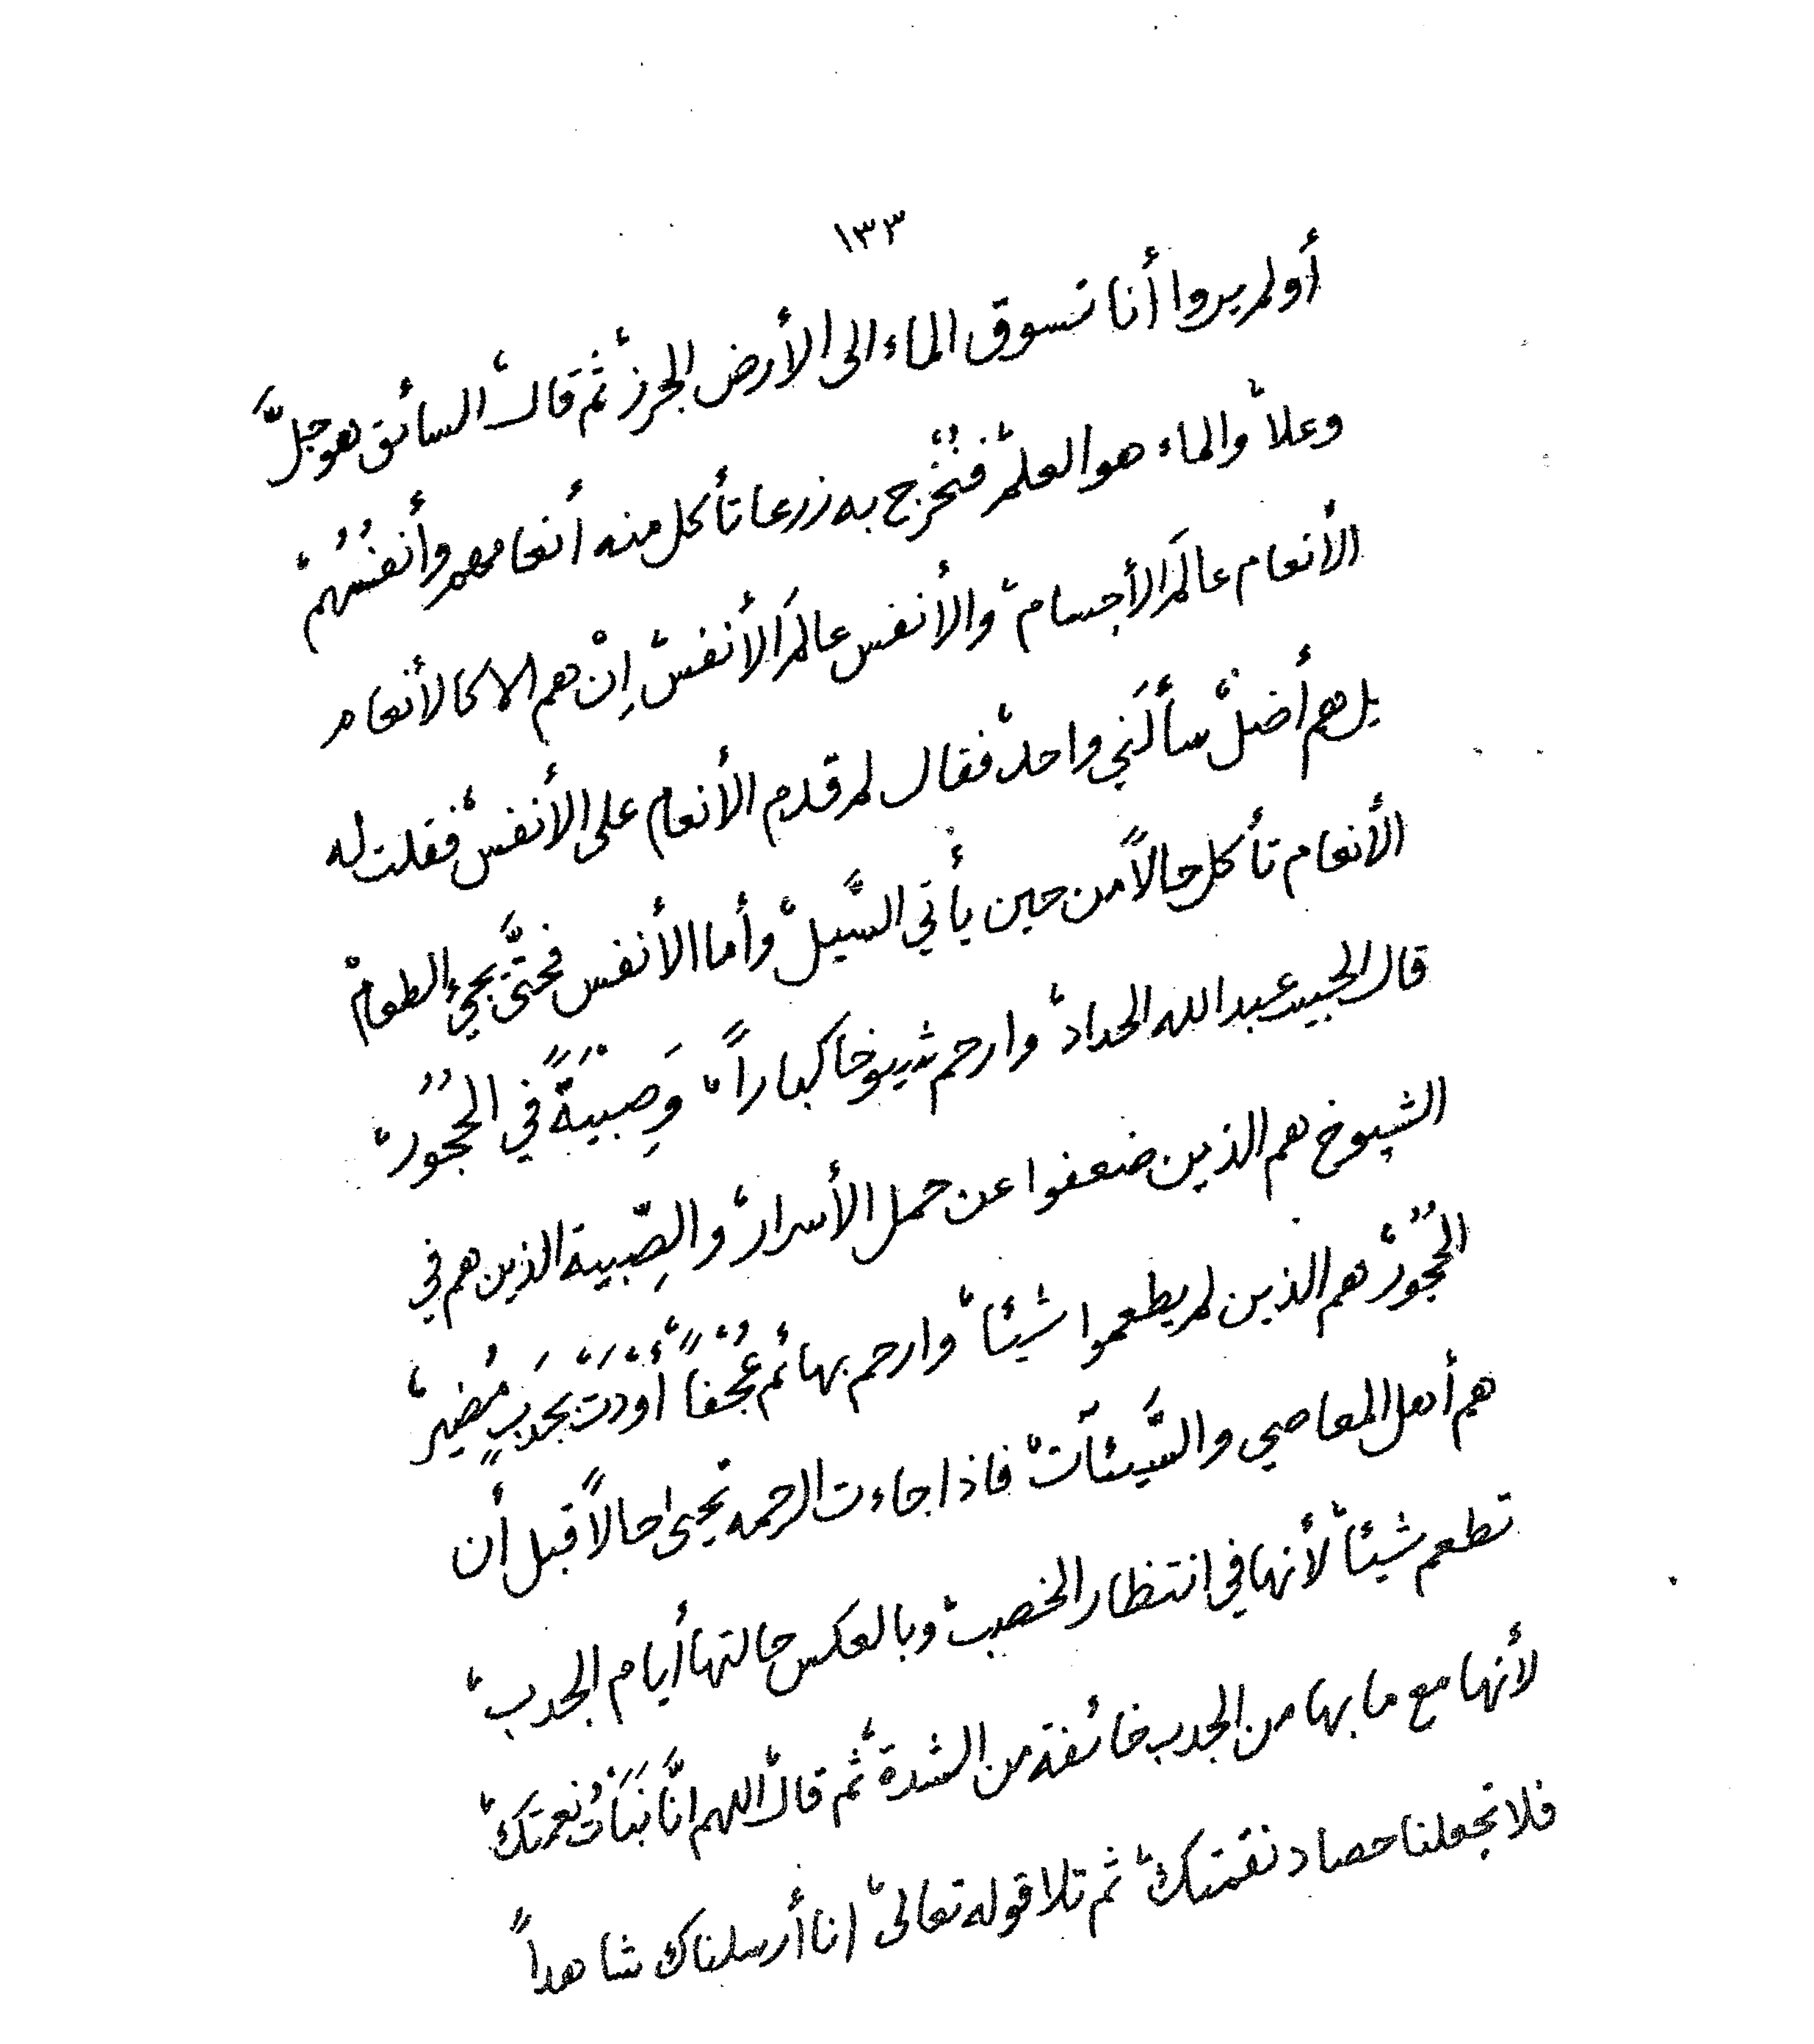 ١٣٣
أولم يروا أنا نسوق الماء الى الأرض الجرز، ثم قال، السائق هو جلَّ
وعلا، والماء هو العلم، فنُخْرج به زرعا تأكل منه أنعامهم وأنفسُهُم،
الأنعام عالَم الأجسام، والأنفس عالَم الأنفس، إنْ هم الا كالأنعام
بل هم أضل، سألَني واحد، فقال لم قدم الأنعام على الأنفس، فقلت له
الأنعام تأكل حالاً من حين يأتي السَّيل، وأما الأنفس فحتَّى يجيء الطعام،
قال الحبيب عبد الله الحداد، وارحم شيوخا كباراً، وَصِبْيَةً في الحُجُور،
الشيوخ هم الذين ضعفوا عن حمل الأسرار، والصِّبية الذين هم في
الحُجُور، هم الذين لم يطعموا شيئا، وارحم بهائم عُجْفاً، أَوْدَتْ بجَدبٍ مُضير،
هم أهل المعاصي والسَّيئات، فاذا جاءت الرحمه تحيى حالاً قبل أن
تطعم شيئا، لأنها في انتظار الخصب، وبالعكس حالتها أيام الجدب،
لأنها مع ما بها من الجدب خائفة من الشدة، ثم قال، اللهم انَّا نَبَاتُ نعمتك،
فلا تجعلنا حصاد نقمتك، ثم تلا قوله تعالى، انا أرسلناك شاهداً